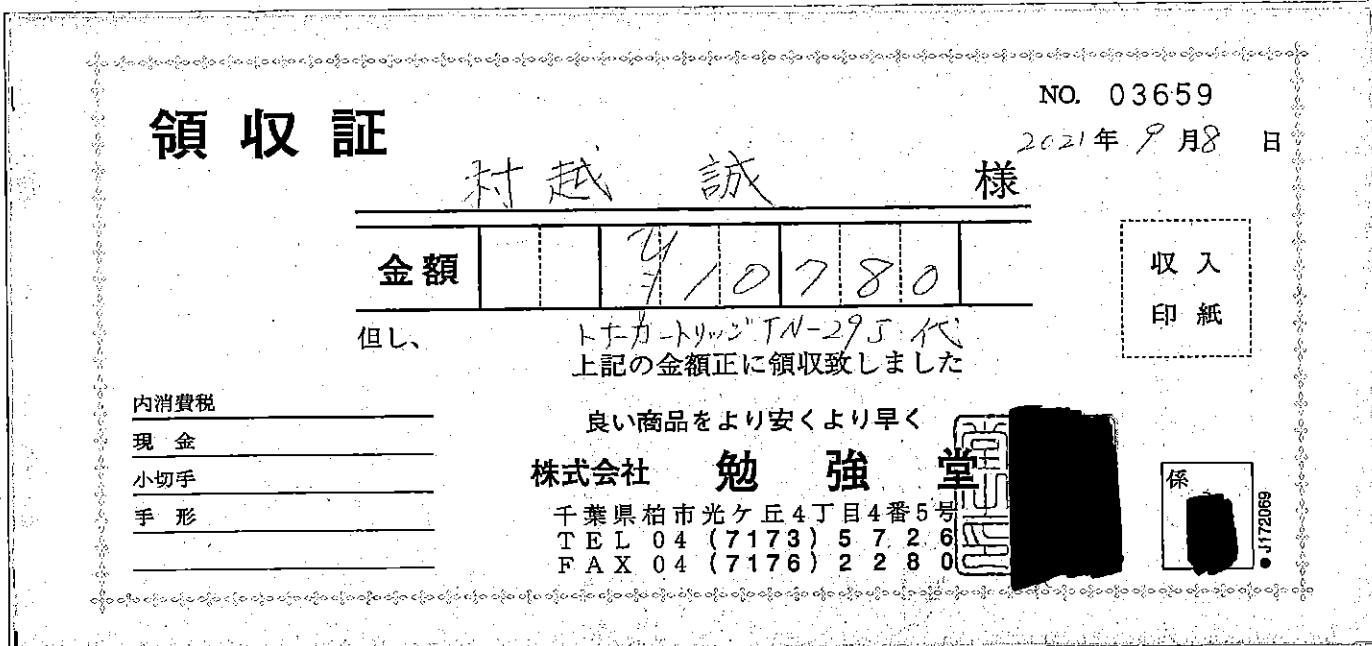 NO. 03659
領収証
2021年 9月8日
村越 誠 様
金額 ¥10780
但し、 トナーカートリッジTN-29J 代
上記の金額正に領収致しました
収入
印紙
内消費税
現金
小切手
手形
良い商品をより安くより早く
株式会社 勉強堂
千葉県柏市光ケ丘4丁目4番5号
TEL 04 (7173) 5726
FAX 04 (7176) 2280
係
●J172069